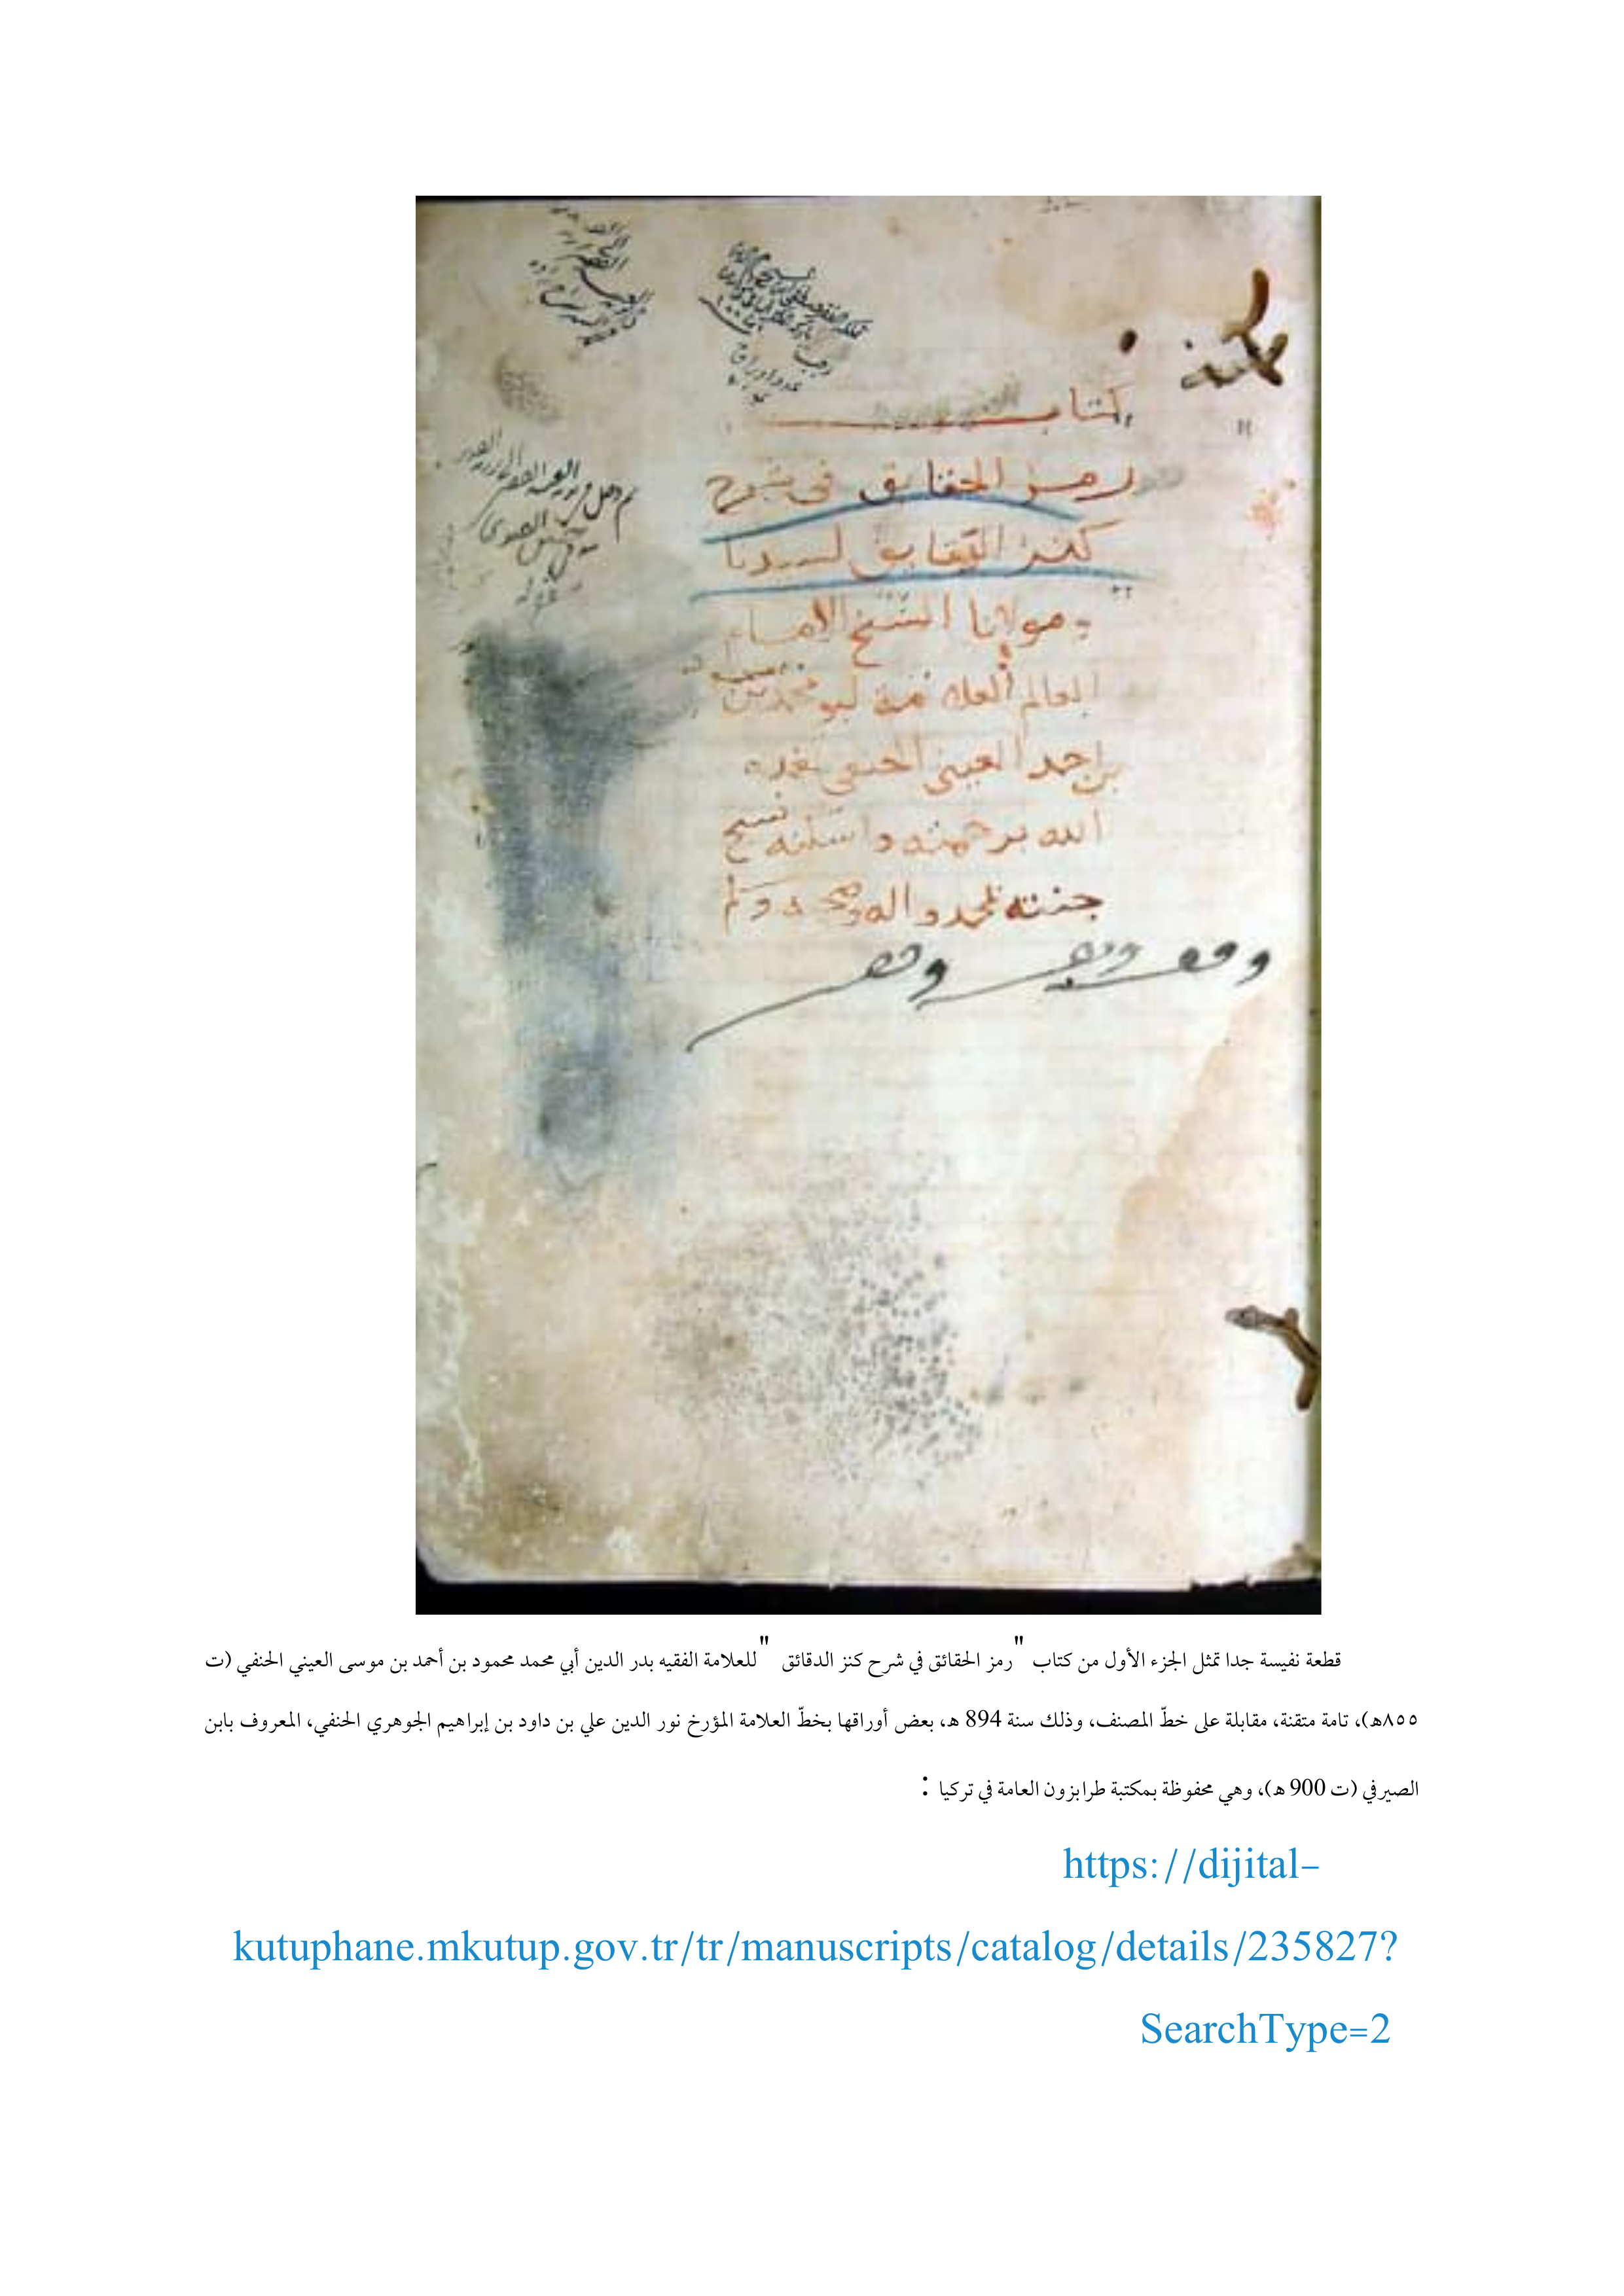 كتاب
رمز الحقايق في شرح
كنز الدقايق لسيدنا
ومولانا الشيخ الامام
العالم العلامة ابو محمد محمود
بن احمد العيني الحنفي تغمده
الله برحمته واسكنه فسيح
جنته بمحمد واله وصحبه وسلم
وقف وقف وقف
قطعة نفيسة جدا تمثل الجزء الأول من كتاب "رمز الحقائق في شرح كنز الدقائق "للعلامة الفقيه بدر الدين أبي محمد محمود بن أحمد بن موسى العيني الحنفي (ت
٨٥٥ه)، تامة متقنة، مقابلة على خطّ المصنف، وذلك سنة 894 ه، بعض أوراقها بخطّ العلامة المؤرخ نور الدين علي بن داود بن إبراهيم الجوهري الحنفي، المعروف بابن
الصيرفي (ت 900 ه)، وهي محفوظة بمكتبة طرابزون العامة في تركيا :
https://dijital-
kutuphane.mkutup.gov.tr/tr/manuscripts/catalog/details/235827?
SearchType=2